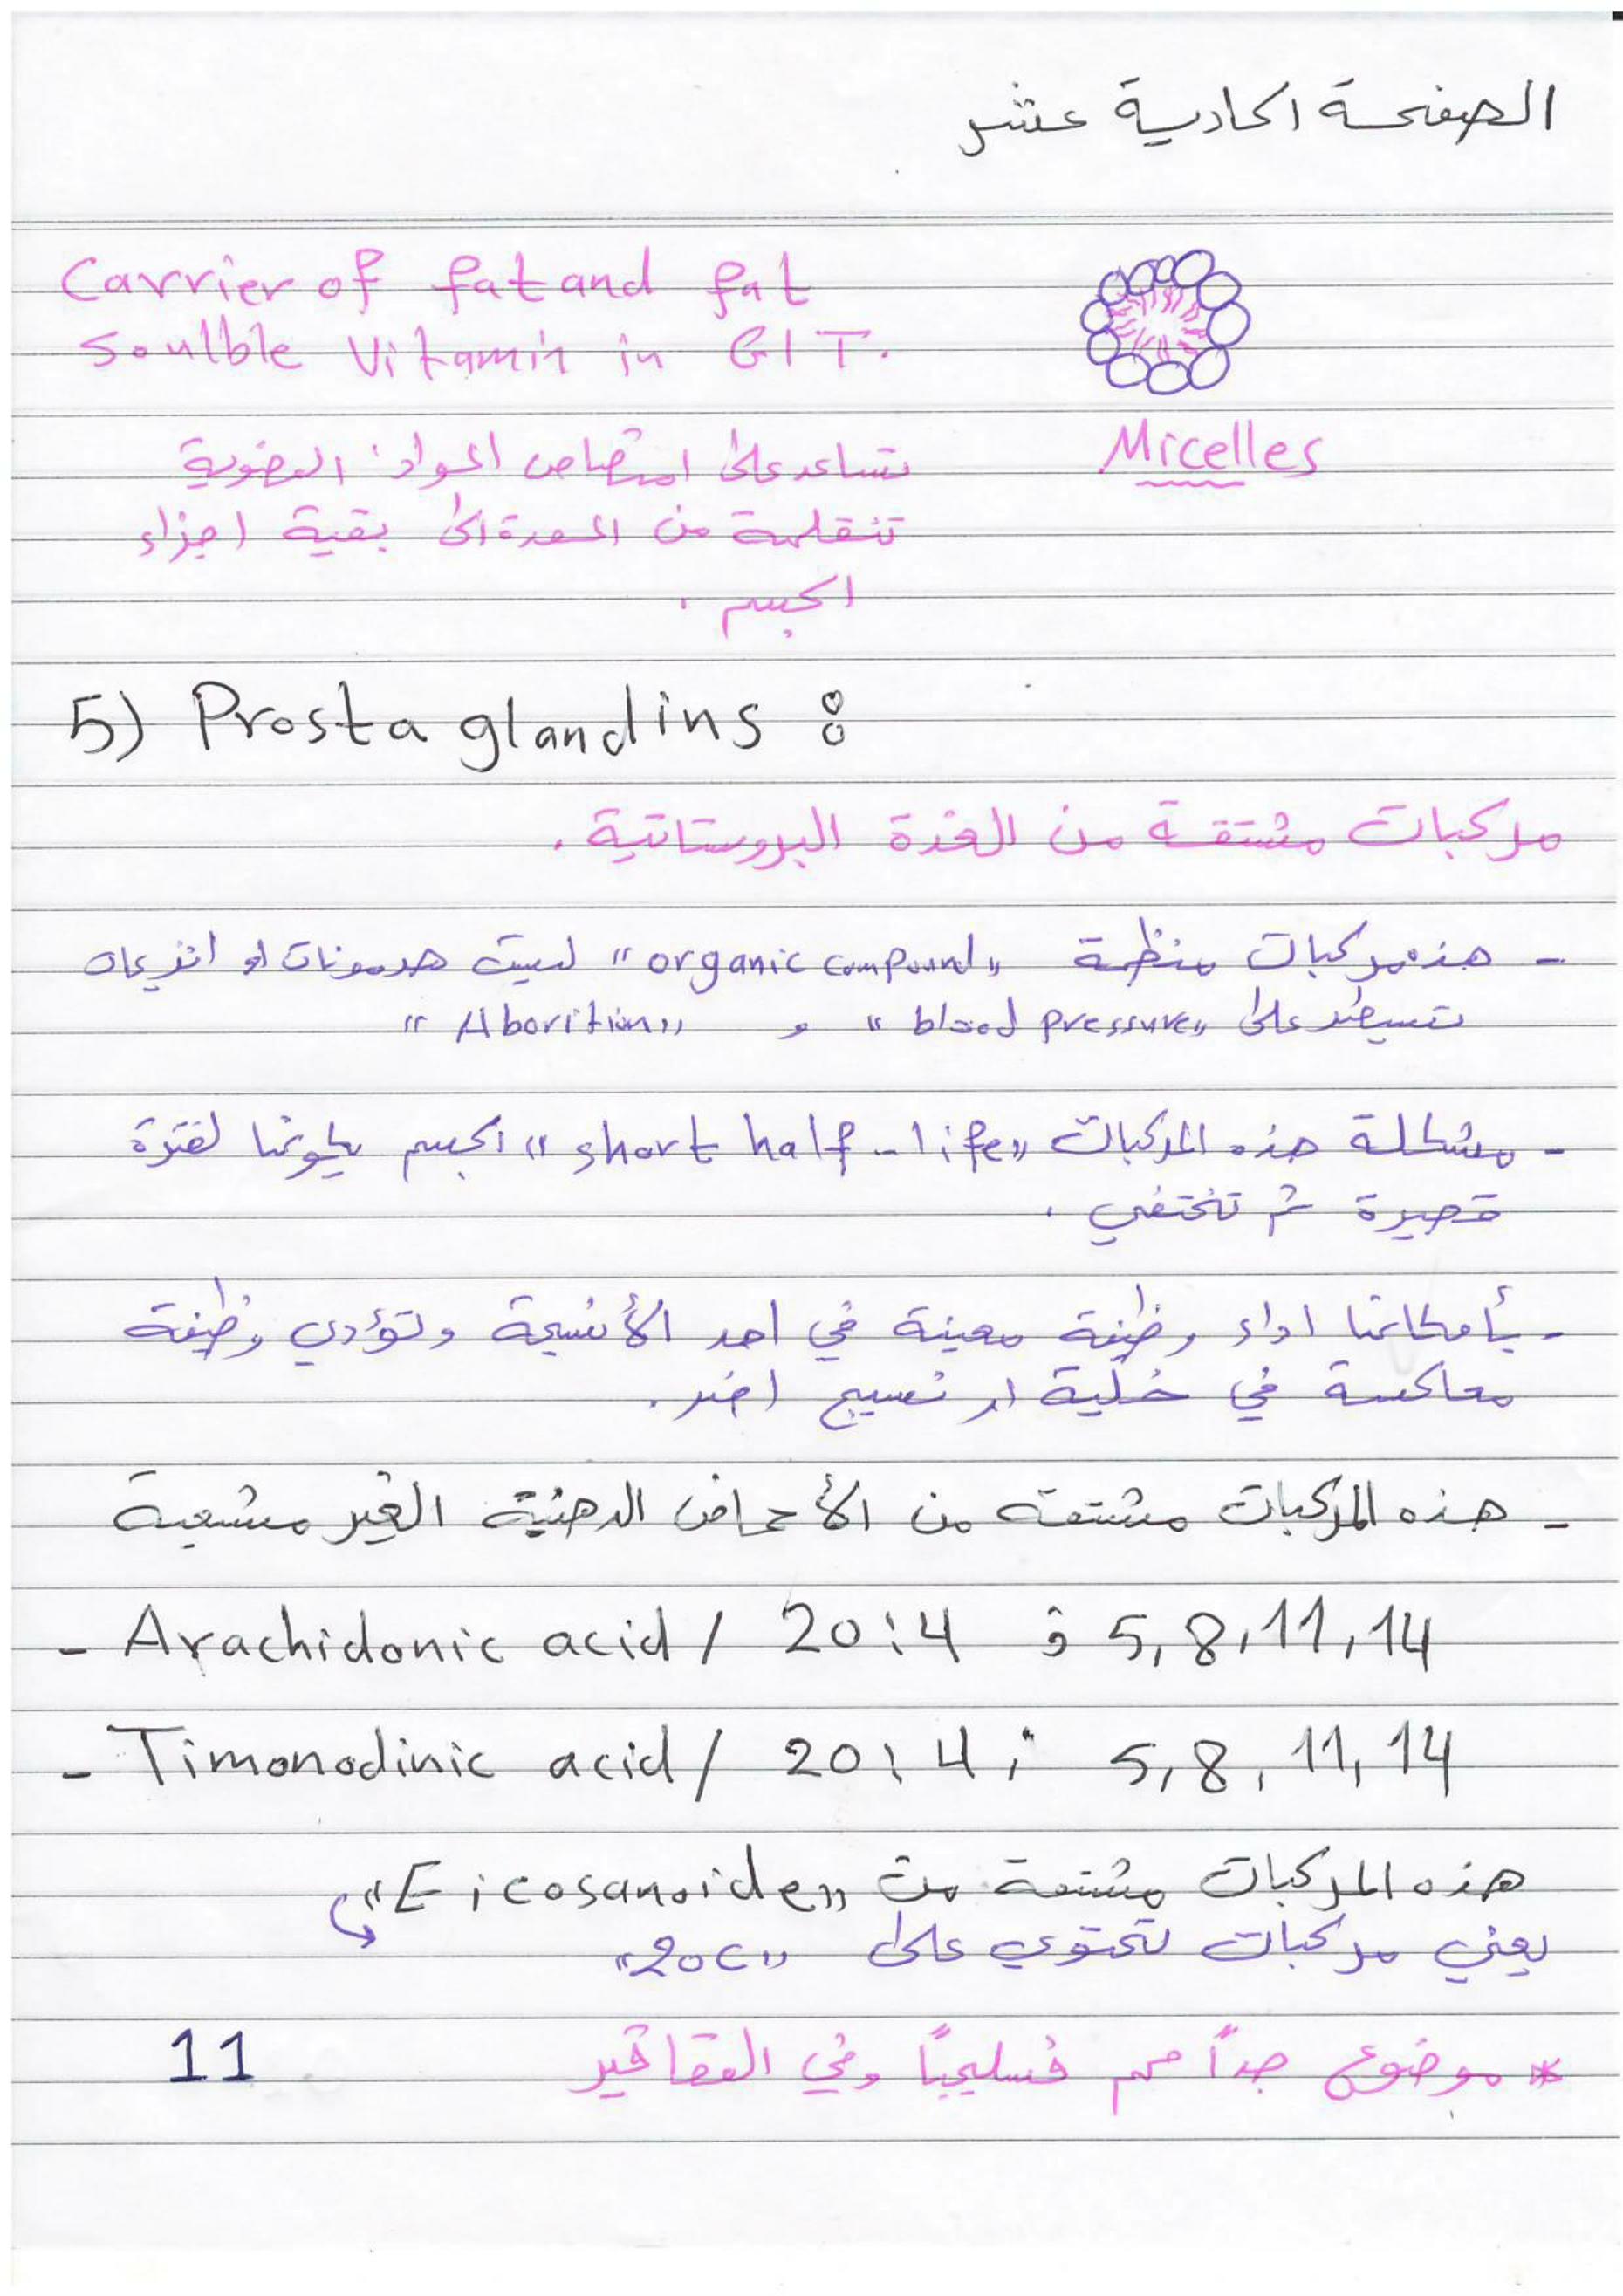 الصفحة الحادية عشر
Carrier of fat and fat
Soulble Vitamin in GIT.
Micelles
تساعد على امتصاص المواد العضوية
تنقلهة من المعدة الى بقية اجزاء
الجسم .
5) Prostaglandins :
مركبات مشتقة من الغدة البروستاتية .
- هذه مركبات منظمة "organic compound" ليست هرمونات او انزيمات
تسيطر على "blood pressure" و "Aborition"
- مشكلة هذه المركبات "short half-life" الجسم يكونها لفترة
قصيرة ثم تختفي .
- بأمكانها اداء وظيفة معينة في احد الأنسجة وتؤدي وظيفة
معاكسة في خلية او نسيج اخر .
- هذه المركبات مشتقة من الأحماض الدهنية الغير مشبعة
- Arachidonic acid / 20:4 ; 5,8,11,14
- Timonodinic acid / 20:4 ; 5,8,11,14
هذه المركبات مشتقة من "Eicosanoide"
يعني مركبات تحتوي على "20C"
* موضوع جداً مهم فسليجياً وفي العقاقير
11